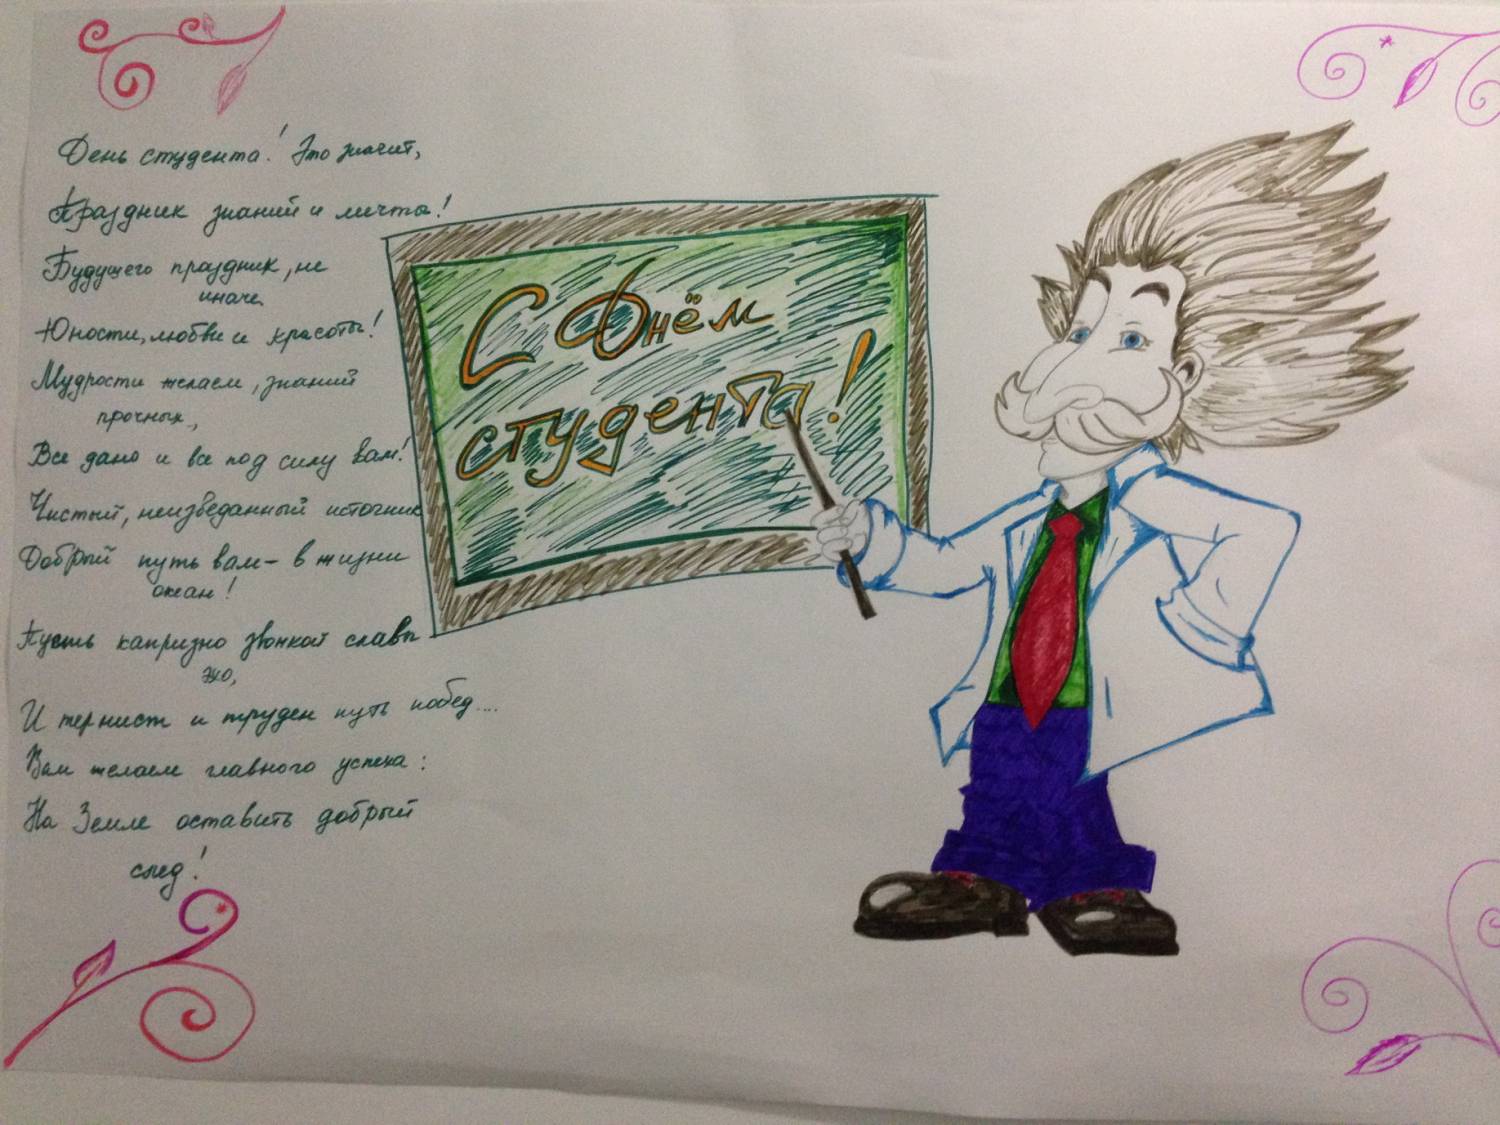 День студента! Это значит,
Праздник знаний и мечты!
Будущего праздник, не
иначе.
Юности, любви и красоты!
Мудрости желаем, знаний
прочных,
Все дано и все под силу вам!
Чистый, неизведанный источник
Добрый путь вам – в жизни
океан!
Пусть капризно звонкой славы
эхо,
И тернист и труден путь побед....
Вам желаем главного успеха:
На Земле оставить добрый
след!
С Днём
студента!